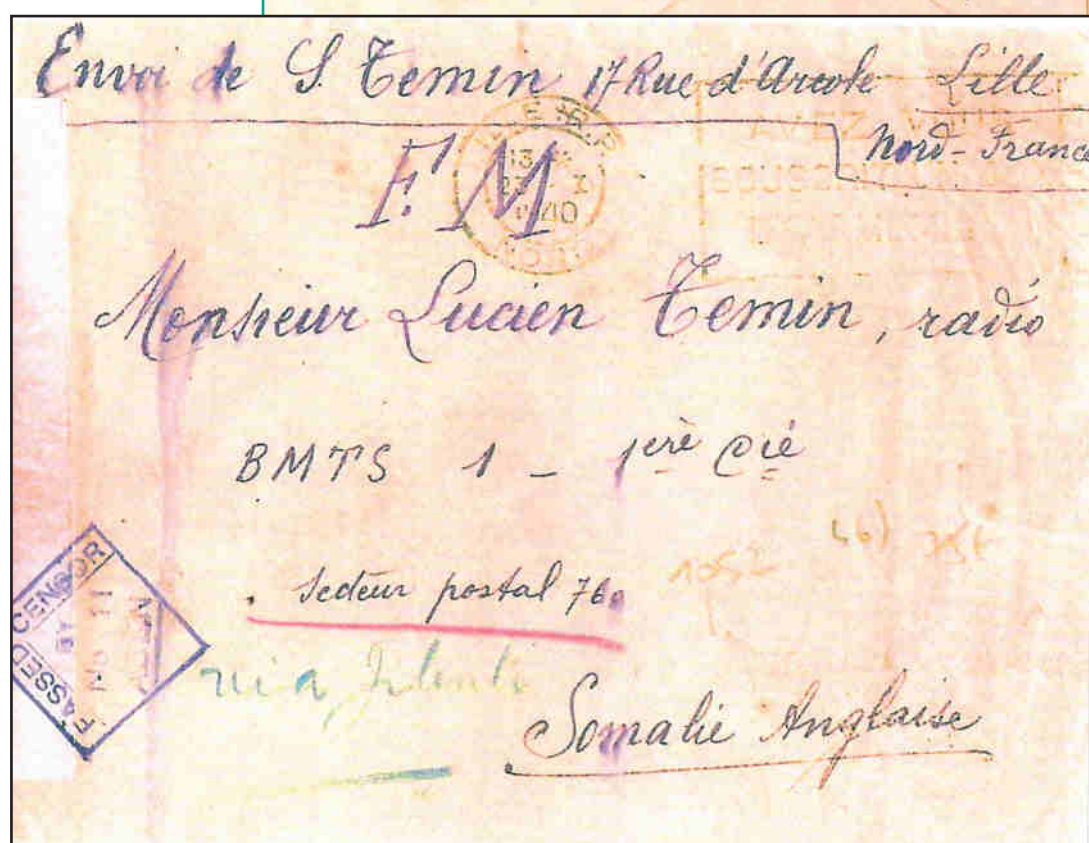 Envoi de S. Temin 17 Rue d'Arcole Lille
Nord - France
F.M
13
1940
AVEZ VOUS
Monsieur Lucien Temin, radio
BMTS 1 - 1ère Cie
Secteur postal 760
PASSED CENSOR
BY
No 11
via
Somalie Anglaise